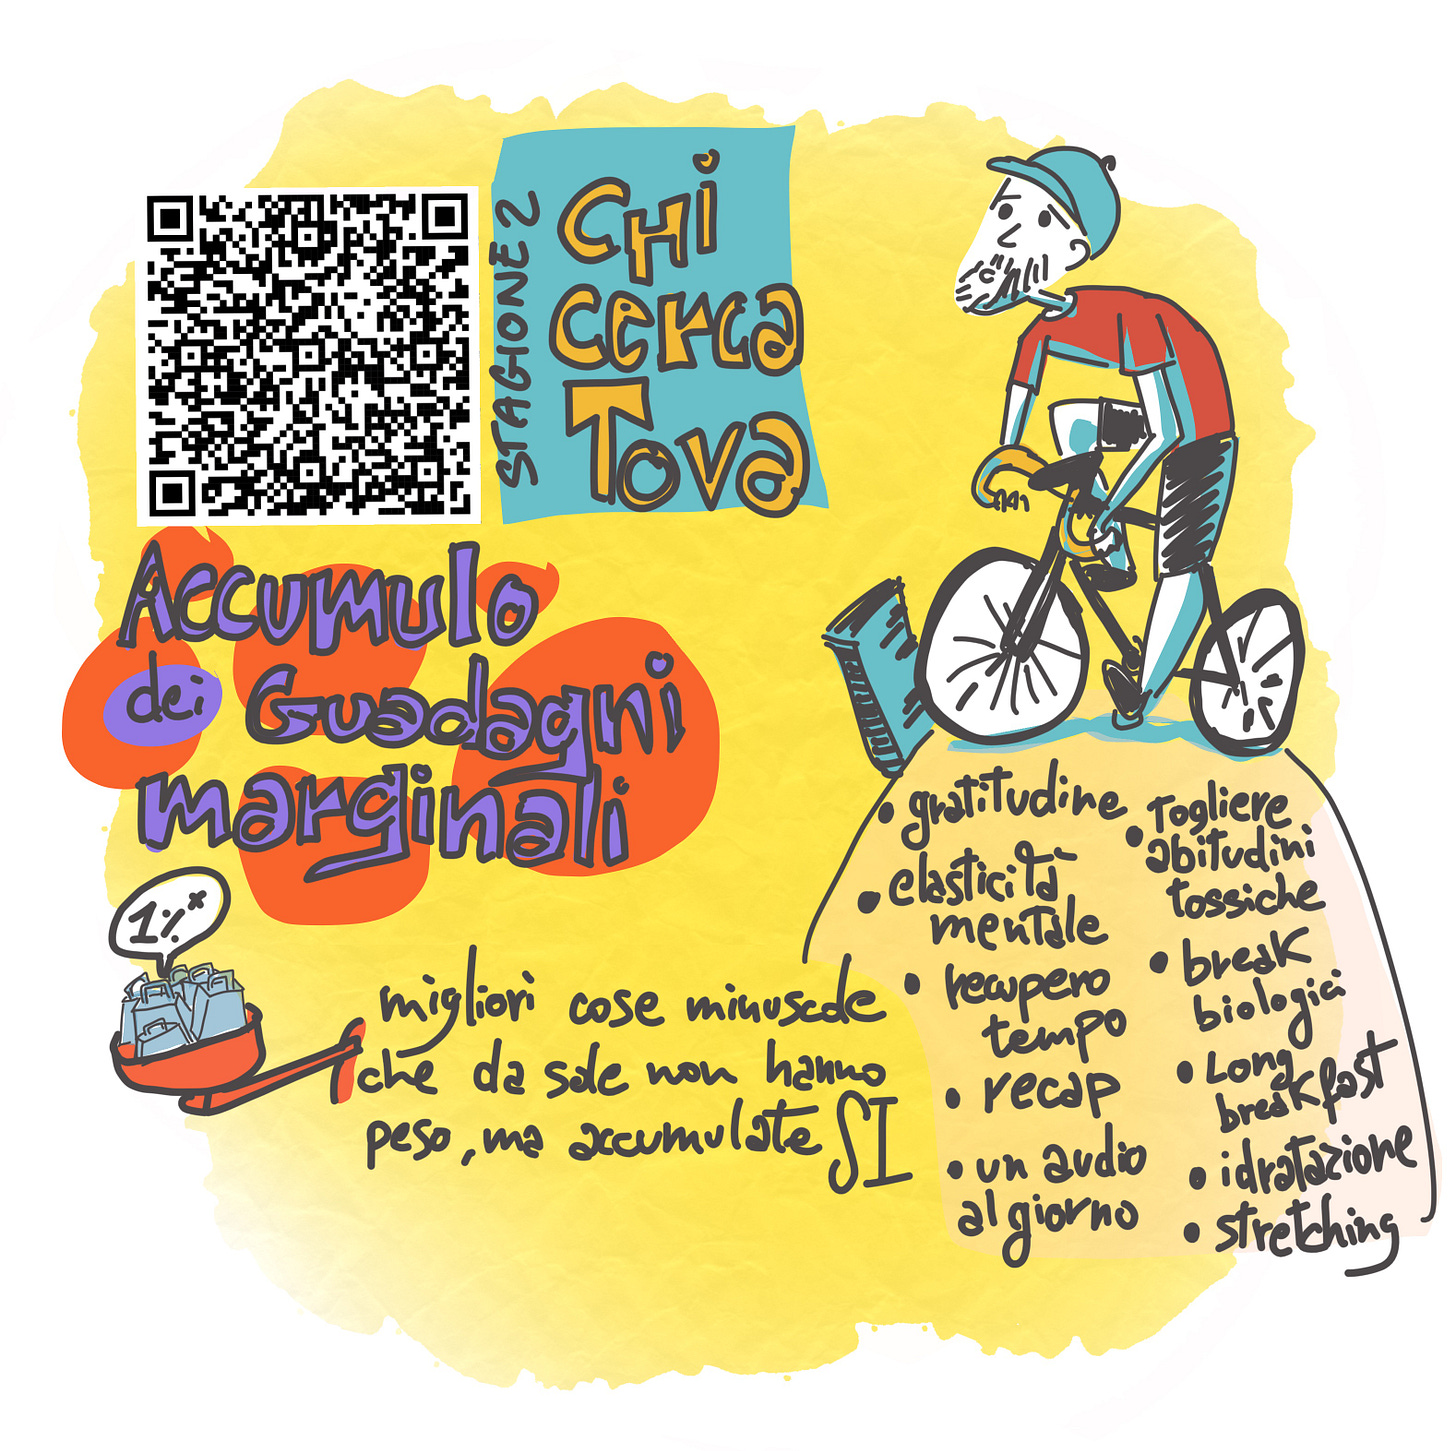 STAGIONE 2
CHi
cerca
Tova
Accumulo
dei Guadagni
marginali
1%
migliori cose minuscole
che da sole non hanno
peso, ma accumulate SI
• gratitudine
• elasticità
mentale
• recupero
tempo
• recap
• un audio
al giorno
• Togliere
abitudini
tossiche
• break
biologici
• Long
breakfast
• idratazione
• stretching